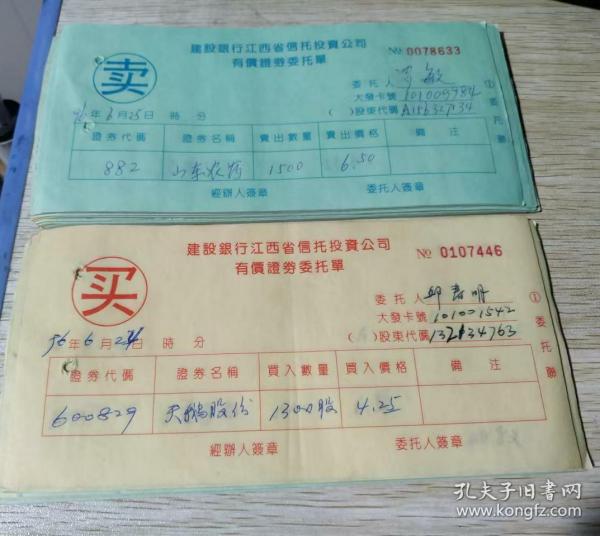 建設銀行江西省信托投資公司
有價證券委托單
№ 0078633
卖
委托人
大發卡號 101009984
( )股東代碼
96年6月25日 時 分
① 委托聯
證券代碼 證券名稱 賣出數量 賣出價格 備 注
882 山东农药 1500 6.50
經辦人簽章 委托人簽章
建設銀行江西省信托投資公司
有價證券委托單
№ 0107446
买
委托人
大發卡號 101001542
( )股東代碼 132134763
96年6月24日 時 分
① 委托聯
證券代碼 證券名稱 買入數量 買入價格 備 注
600829 天鹅股份 1300股 4.25
經辦人簽章 委托人簽章
孔夫子旧书网
www.kongfz.com